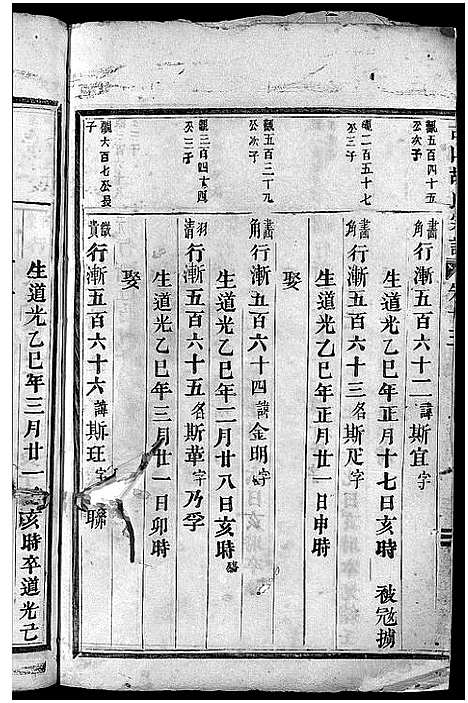 觀五百四十五
公次子
書角行漸五百六十二諱斯宜字
生道光乙巳年正月十七日亥時
被寇擄
觀一百五十七
公三子
書角行漸五百六十三名斯疋字
生道光乙巳年正月廿一日申時
娶
觀五百三十九
公次子
書角行漸五百六十四諱金明字
生道光乙巳年二月廿八日亥時
觀三百四十四
公三子
羽清行漸五百六十五名斯華字乃孚
生道光乙巳年三月廿一日卯時
娶
觀六百七公長
子
行漸五百六十六諱斯玨字聯
生道光乙巳年三月廿一
亥時卒道光己